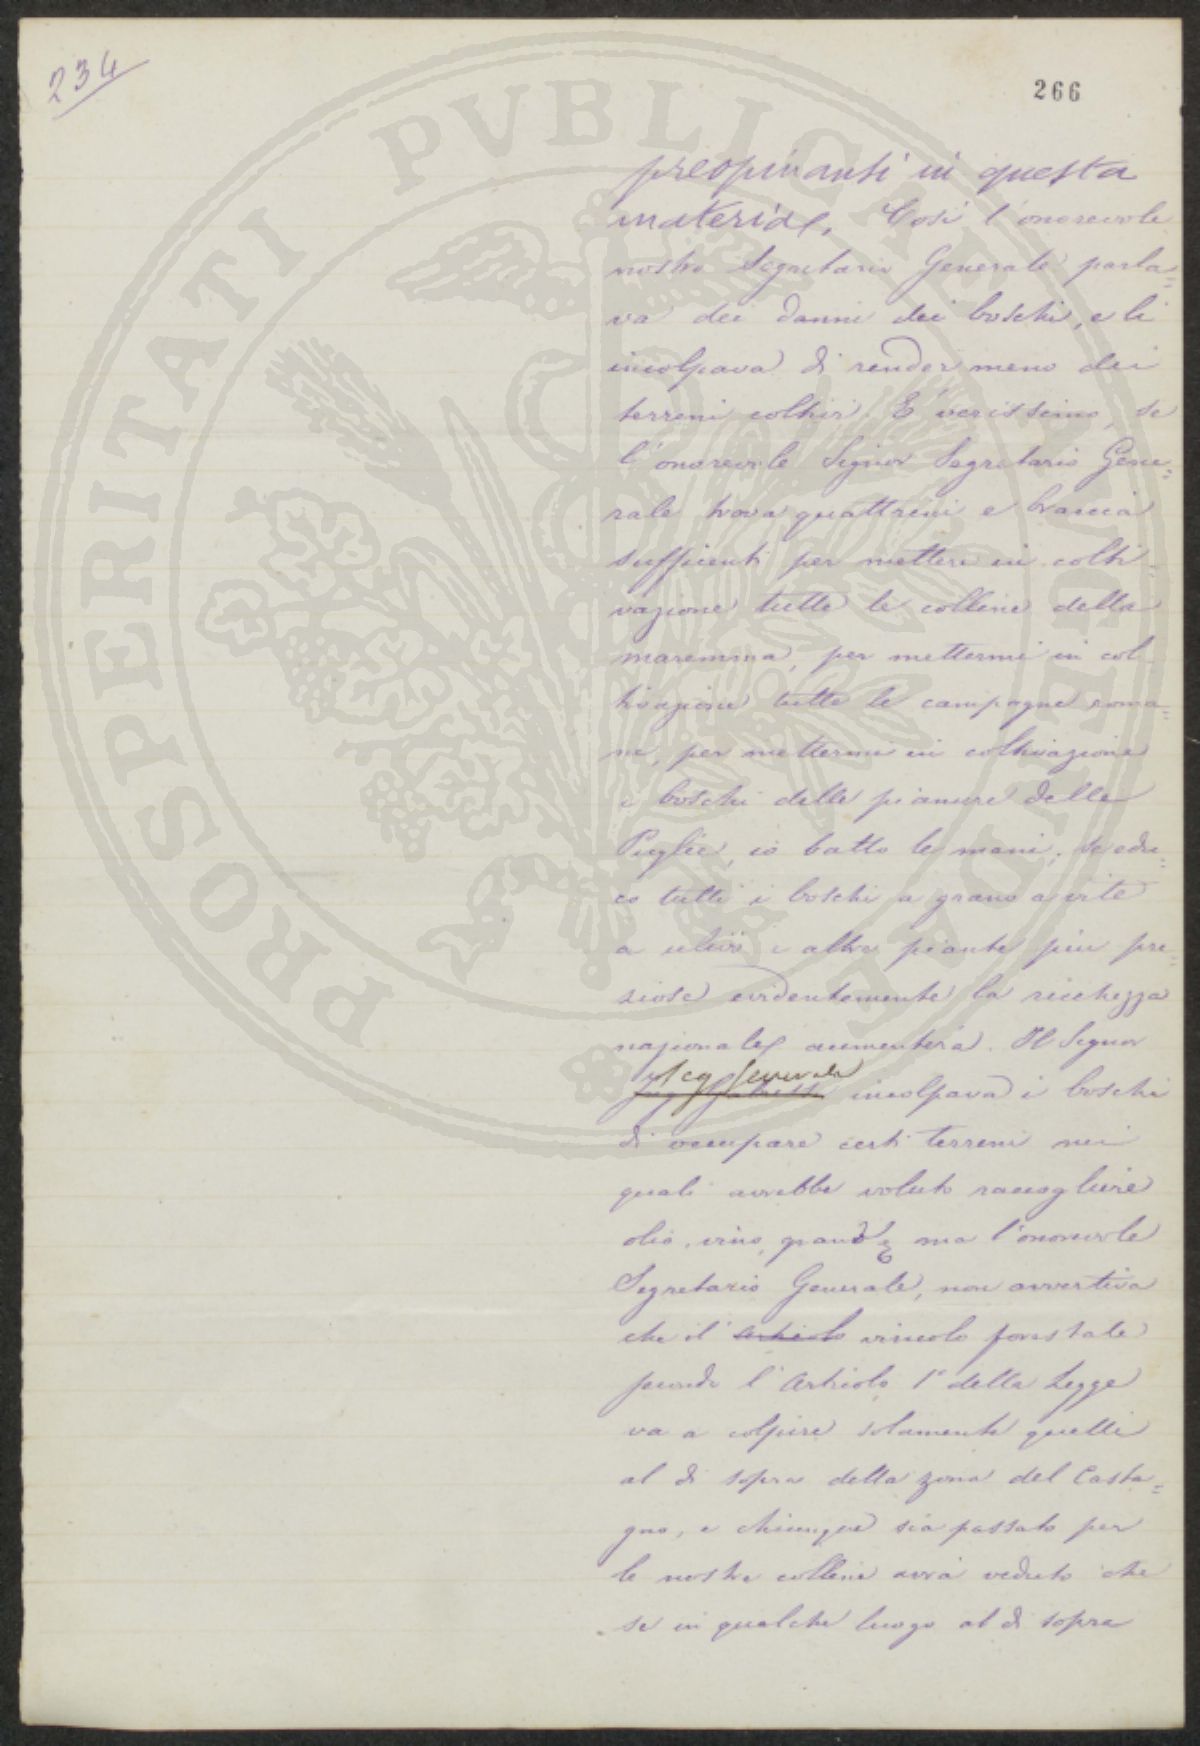 234
266
preopinanti in questa
materia. Così l'onorevole
nostro Segretario Generale parla=
va dei danni dei boschi, e li
incolpava di render meno dei
terreni coltivi. E' verissimo, se
l'onorevole Signor Segretario Gene=
rale trova quattrini e braccia
sufficenti per mettere in colti=
vazione tutte le colline della
maremma, per mettermi in col
tivazione tutte le campagne roma=
ne, per mettermi in coltivazione
i boschi delle pianure delle
Puglie, io batto le mani; se
co tutti i boschi a grano a vite
a ulivo e altre piante più pre=
ziose evidentemente la ricchezza
nazionale aumenterà. Il Signor
Seg Generale
incolpava i boschi
di occupare certi terreni nei
quali avrebbe voluto raccogliere
olio, vino, grano ma l'onorevole
Segretario Generale, non avvertiva
che il articolo vincolo forestale
secondo l'Articolo 1° della Legge
va a colpire solamente quelli
al di sopra della zona del Casta=
gno, e chiunque sia passato per
le nostre colline avrà veduto che
se in qualche luogo al di sopra
PROSPERITATI PVBLICAE AVGENDAE